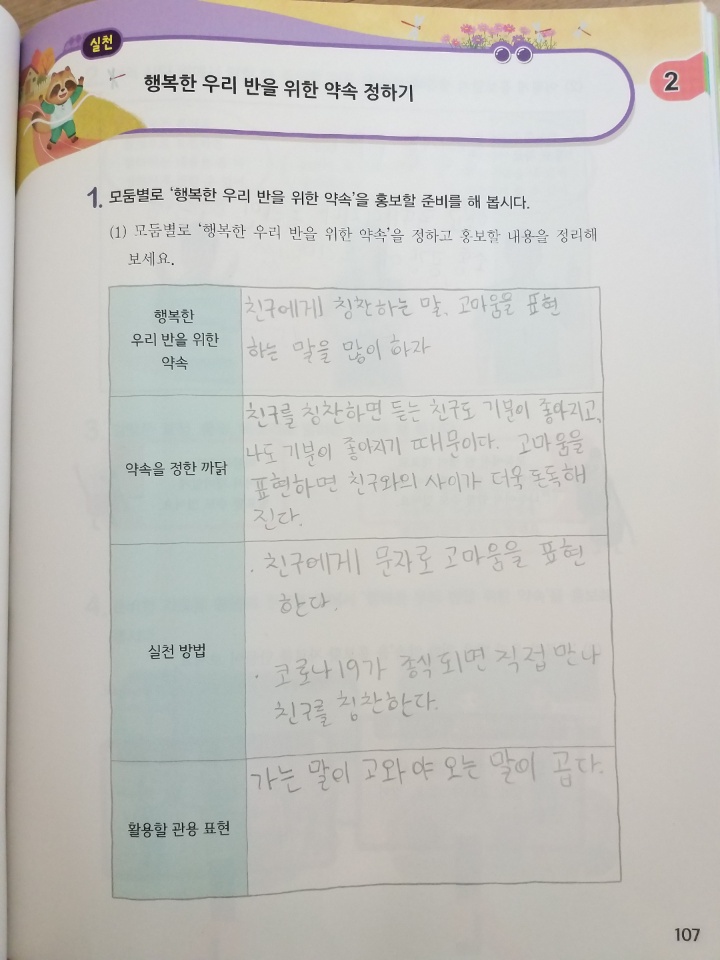 실천
행복한 우리 반을 위한 약속 정하기
2
1. 모둠별로 '행복한 우리 반을 위한 약속'을 홍보할 준비를 해 봅시다.
(1) 모둠별로 '행복한 우리 반을 위한 약속'을 정하고 홍보할 내용을 정리해
보세요.
행복한
우리 반을 위한
약속
친구에게 칭찬하는 말, 고마움을 표현
하는 말을 많이 하자
약속을 정한 까닭
친구를 칭찬하면 듣는 친구도 기분이 좋아지고,
나도 기분이 좋아지기 때문이다. 고마움을
표현하면 친구와의 사이가 더욱 돈독해
진다.
실천 방법
· 친구에게 문자로 고마움을 표현
한다.
· 코로나19가 종식되면 직접 만나
친구를 칭찬한다.
활용할 관용 표현
가는 말이 고와야 오는 말이 곱다.
107